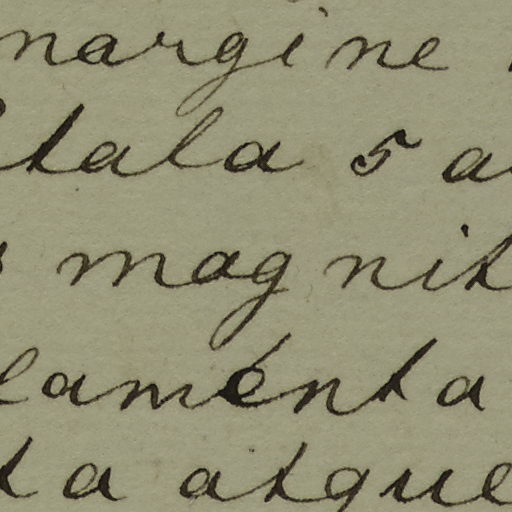 margine
tala 5 a
magnit
lamenta
ta atque